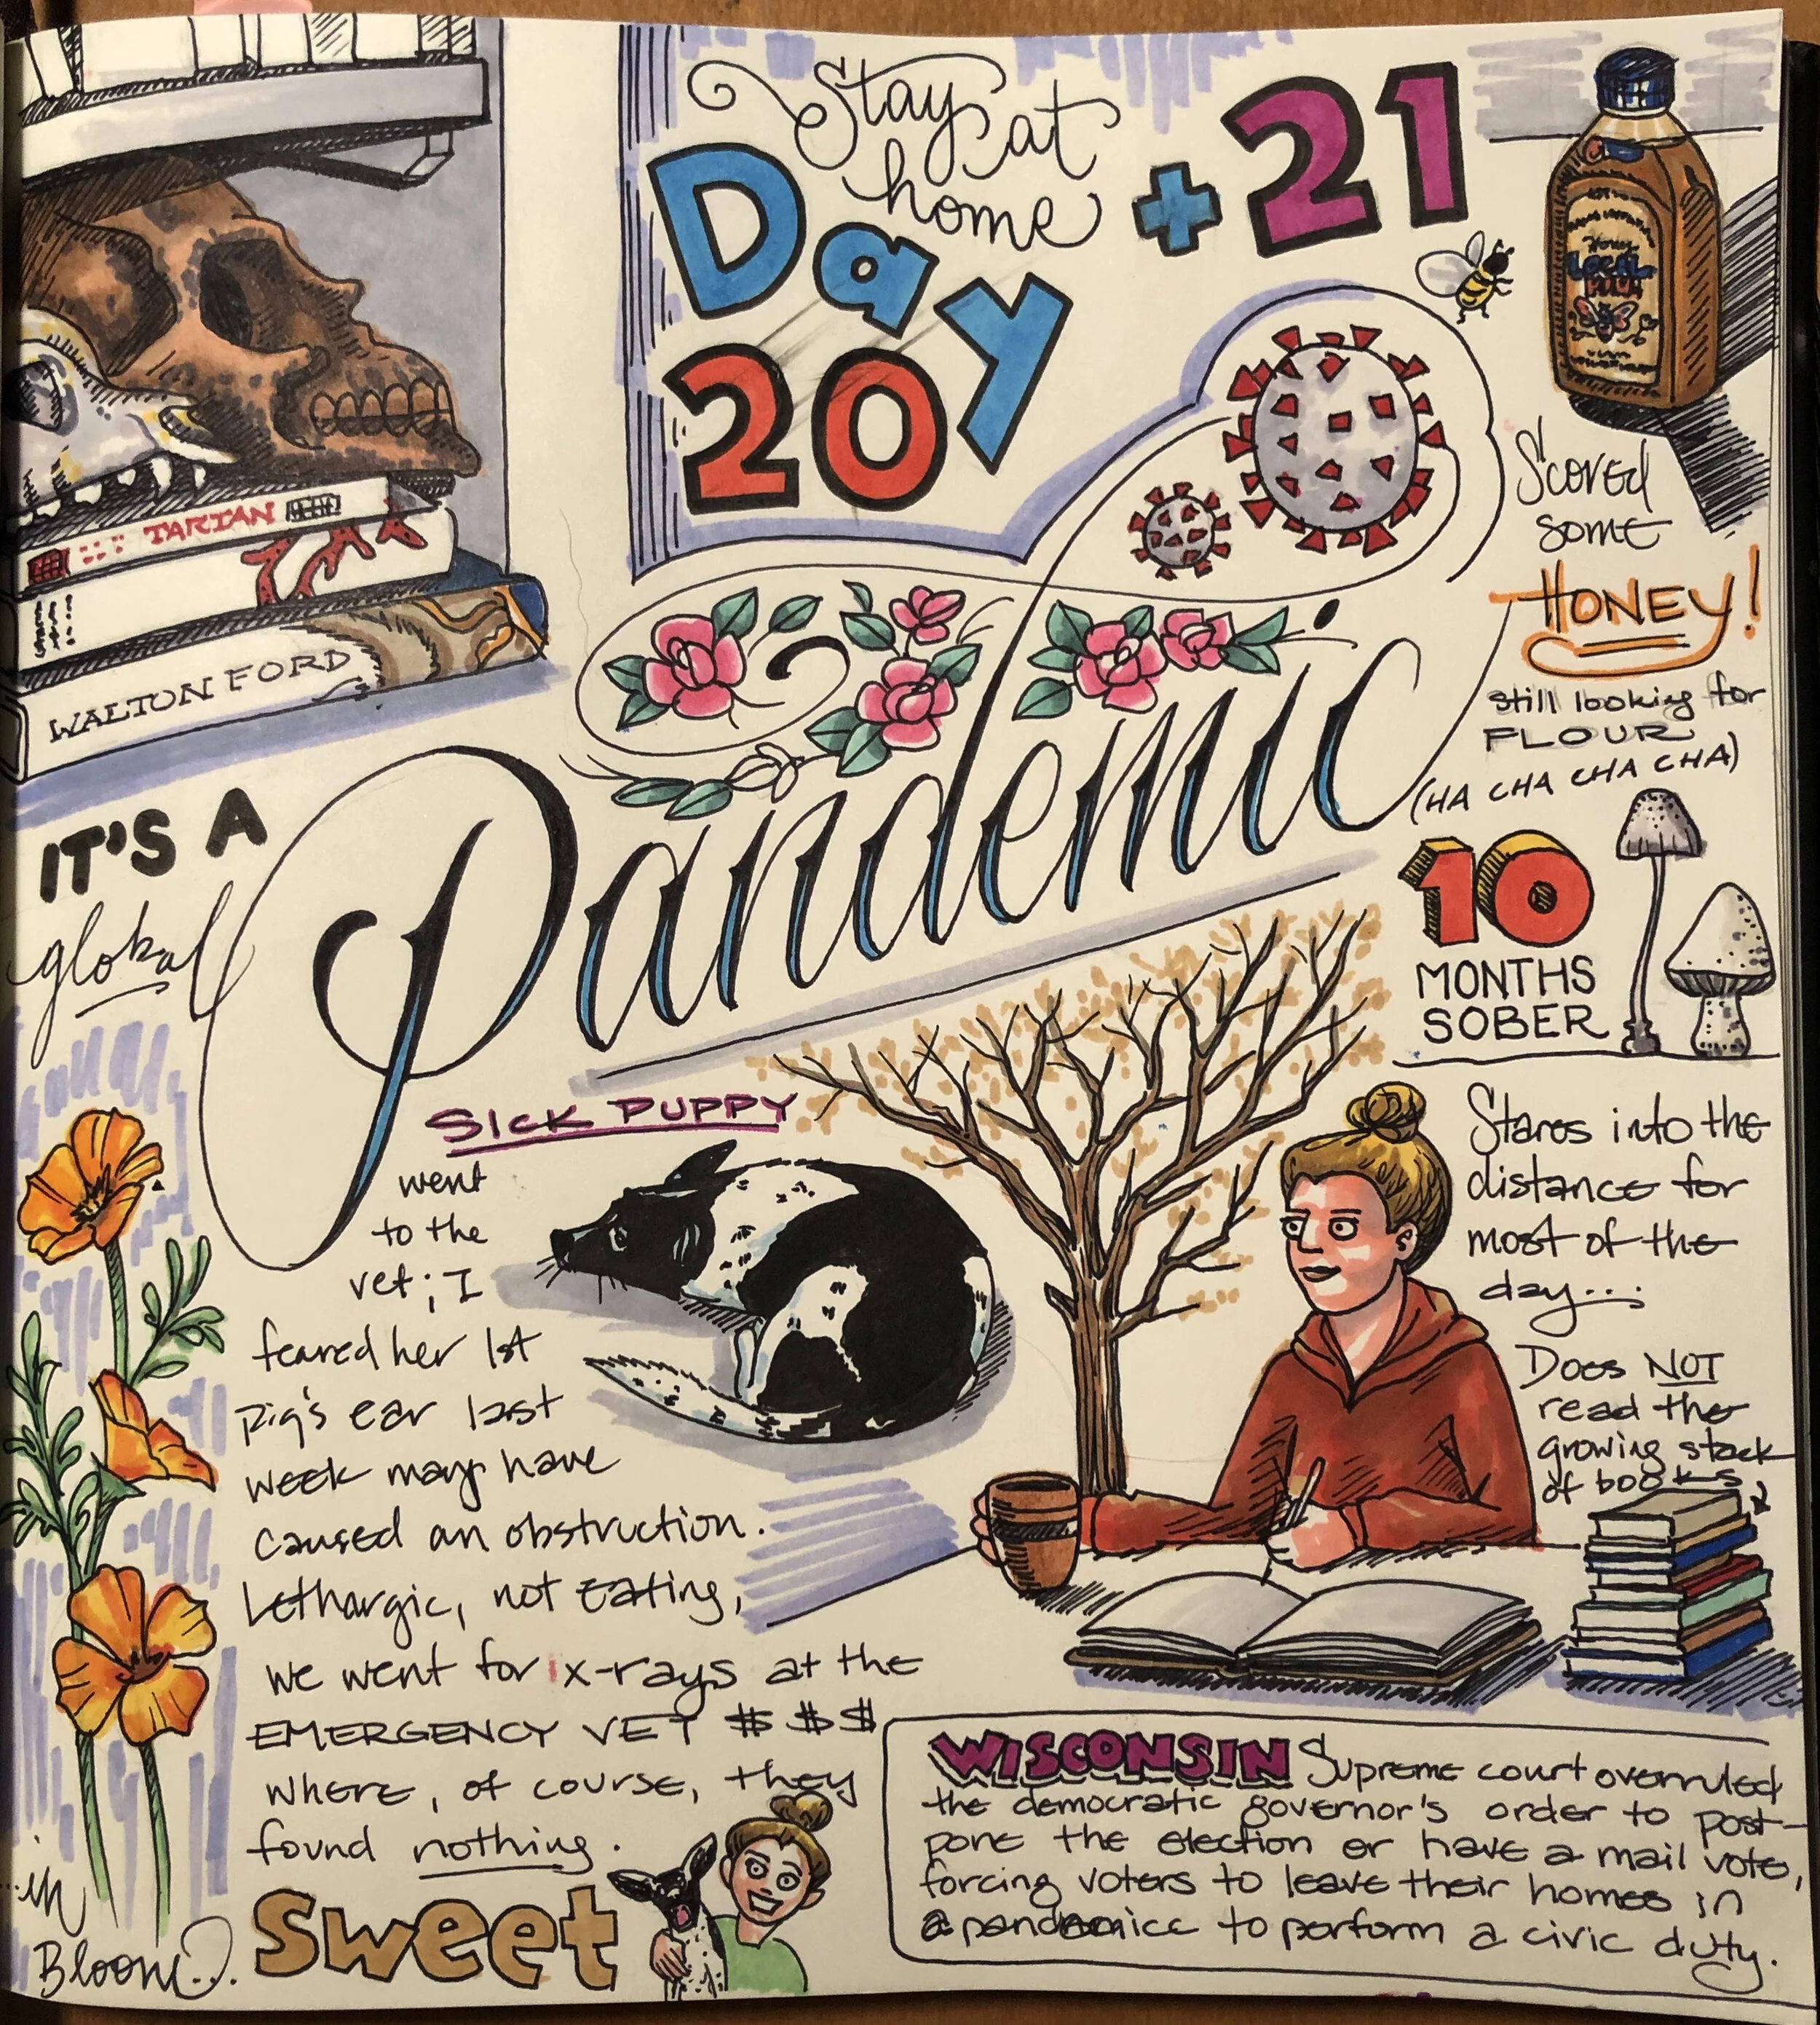 Stay at
home
Day + 21
20
TARTAN
WALTON FORD
Honey
LOCAL
Scored
some
HONEY!
still looking for
FLOUR
(HA CHA CHA CHA)
IT'S A
global
Pandemic
10
MONTHS
SOBER
SICK PUPPY
went
to the
vet; I
feared her 1st
pig's ear last
week may have
caused an obstruction.
Lethargic, not eating,
we went for x-rays at the
EMERGENCY VET $$$
where, of course, they
found nothing.
Sweet
Stares into the
distance for
most of the
day...
Does NOT
read the
growing stack
of books
...in
Bloom...
WISCONSIN Supreme court overruled
the democratic governor's order to post-
pone the election or have a mail vote,
forcing voters to leave their homes in
a pandemic to perform a civic duty.